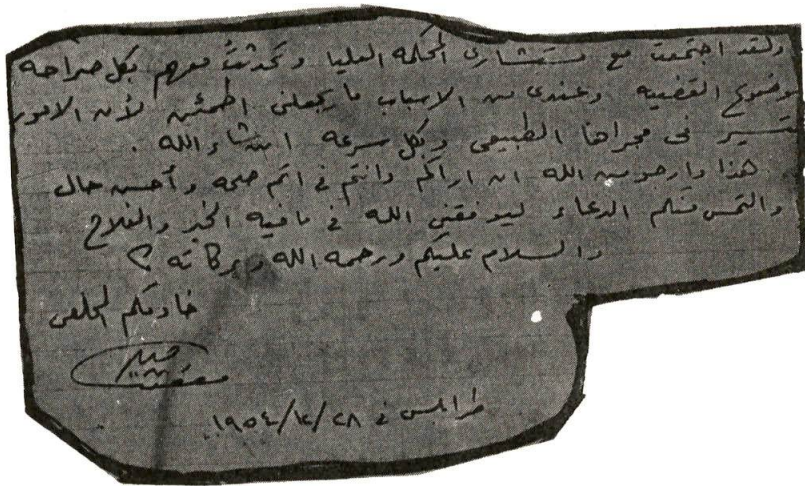 ولقد اجتمعت مع مستشارى المحكمه العليا وتحدثت معهم بكل صراحه
بموضوع القضيه وعندى من الاسباب ما يجعلنى اطمئن لأن الامور
تسير فى مجراها الطبيعى وبكل سرعه انشاء الله .
هذا وارجو من الله ان اراكم وانتم فى اتم صحه وأحسن حال
والتمس منكم الدعاء ليوفقنى الله فى ما فيه الخير والفلاح
والسلام عليكم ورحمه الله وبركاته
خادمكم المخلص
طرابلس فى ٢٨/١٢/١٩٥٤